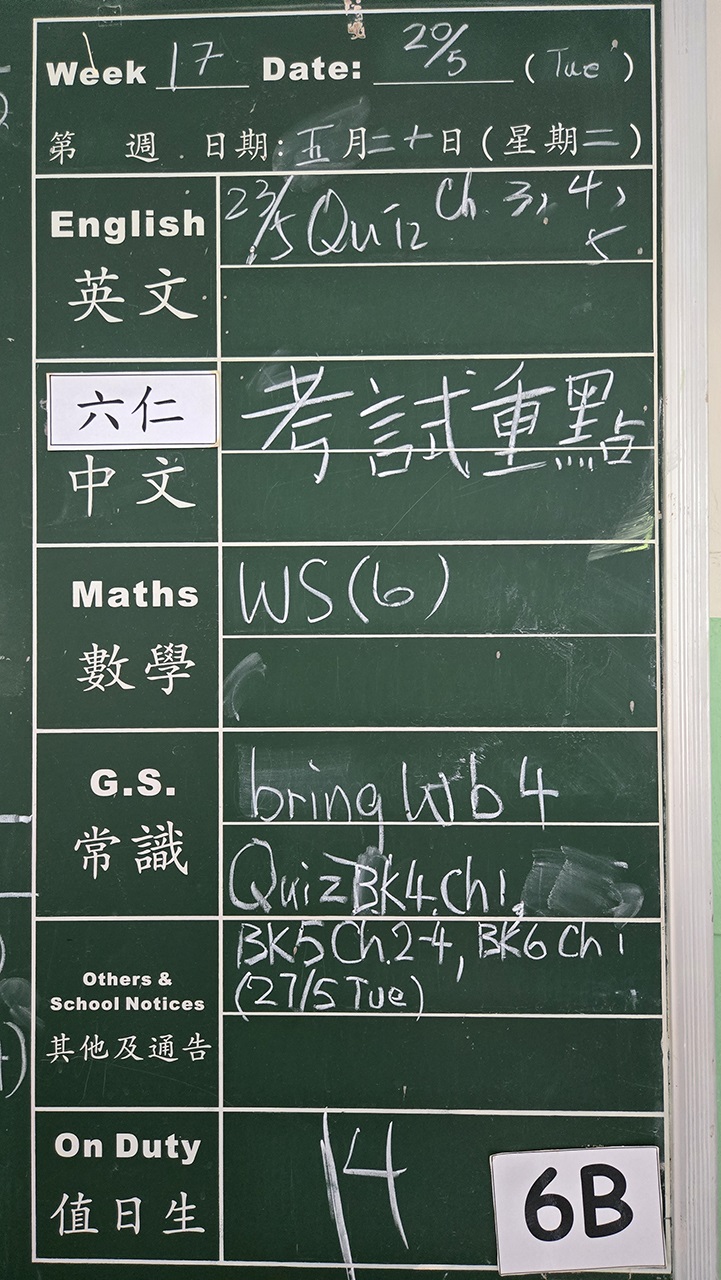 Week 17 Date: 20/5 (Tue)
第 週 日期: 五月二十日(星期二)
English 23/5 Quiz Ch. 3, 4,
5
英文
六仁 考試重點
中文
Maths WS(6)
數學
G.S. bring Wb 4
常識 Quiz BK4.Ch1,
BK5 Ch.2-4, BK6 Ch 1
Others & (27/5 Tue)
School Notices
其他及通告
On Duty 14
值日生
6B